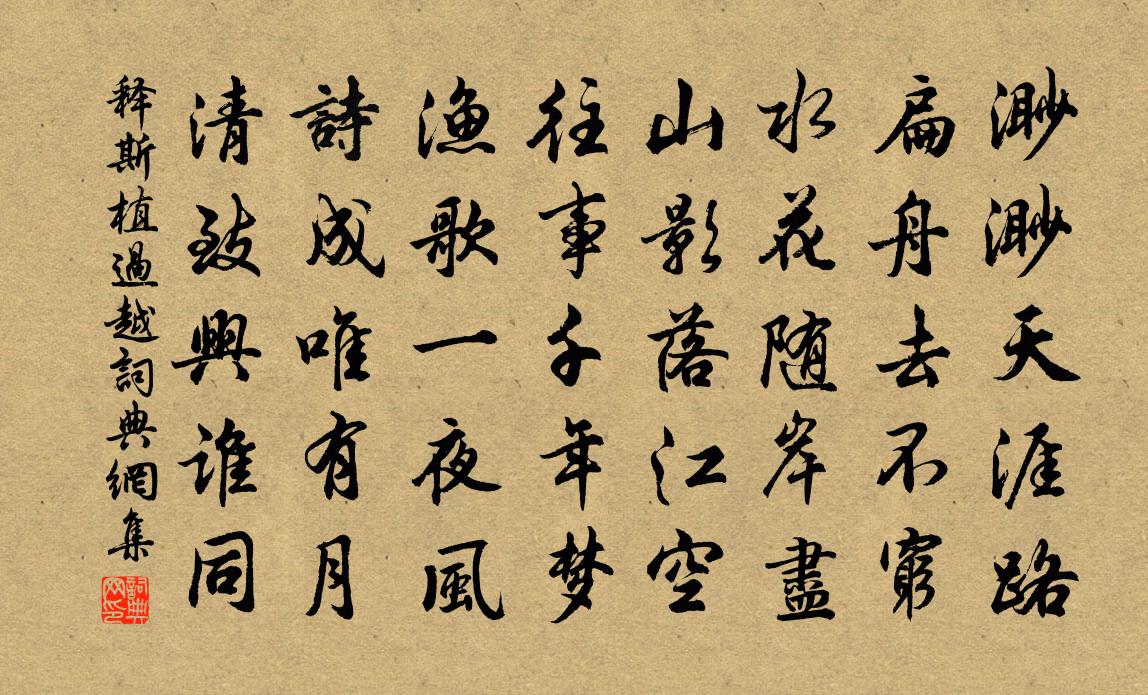 渺渺天涯路
扁舟去不窮
水花随岸盡
山影落江空
往事千年梦
漁歌一夜風
詩成唯有月
清致興誰同
释斯植過越詞典網集
詞典网印